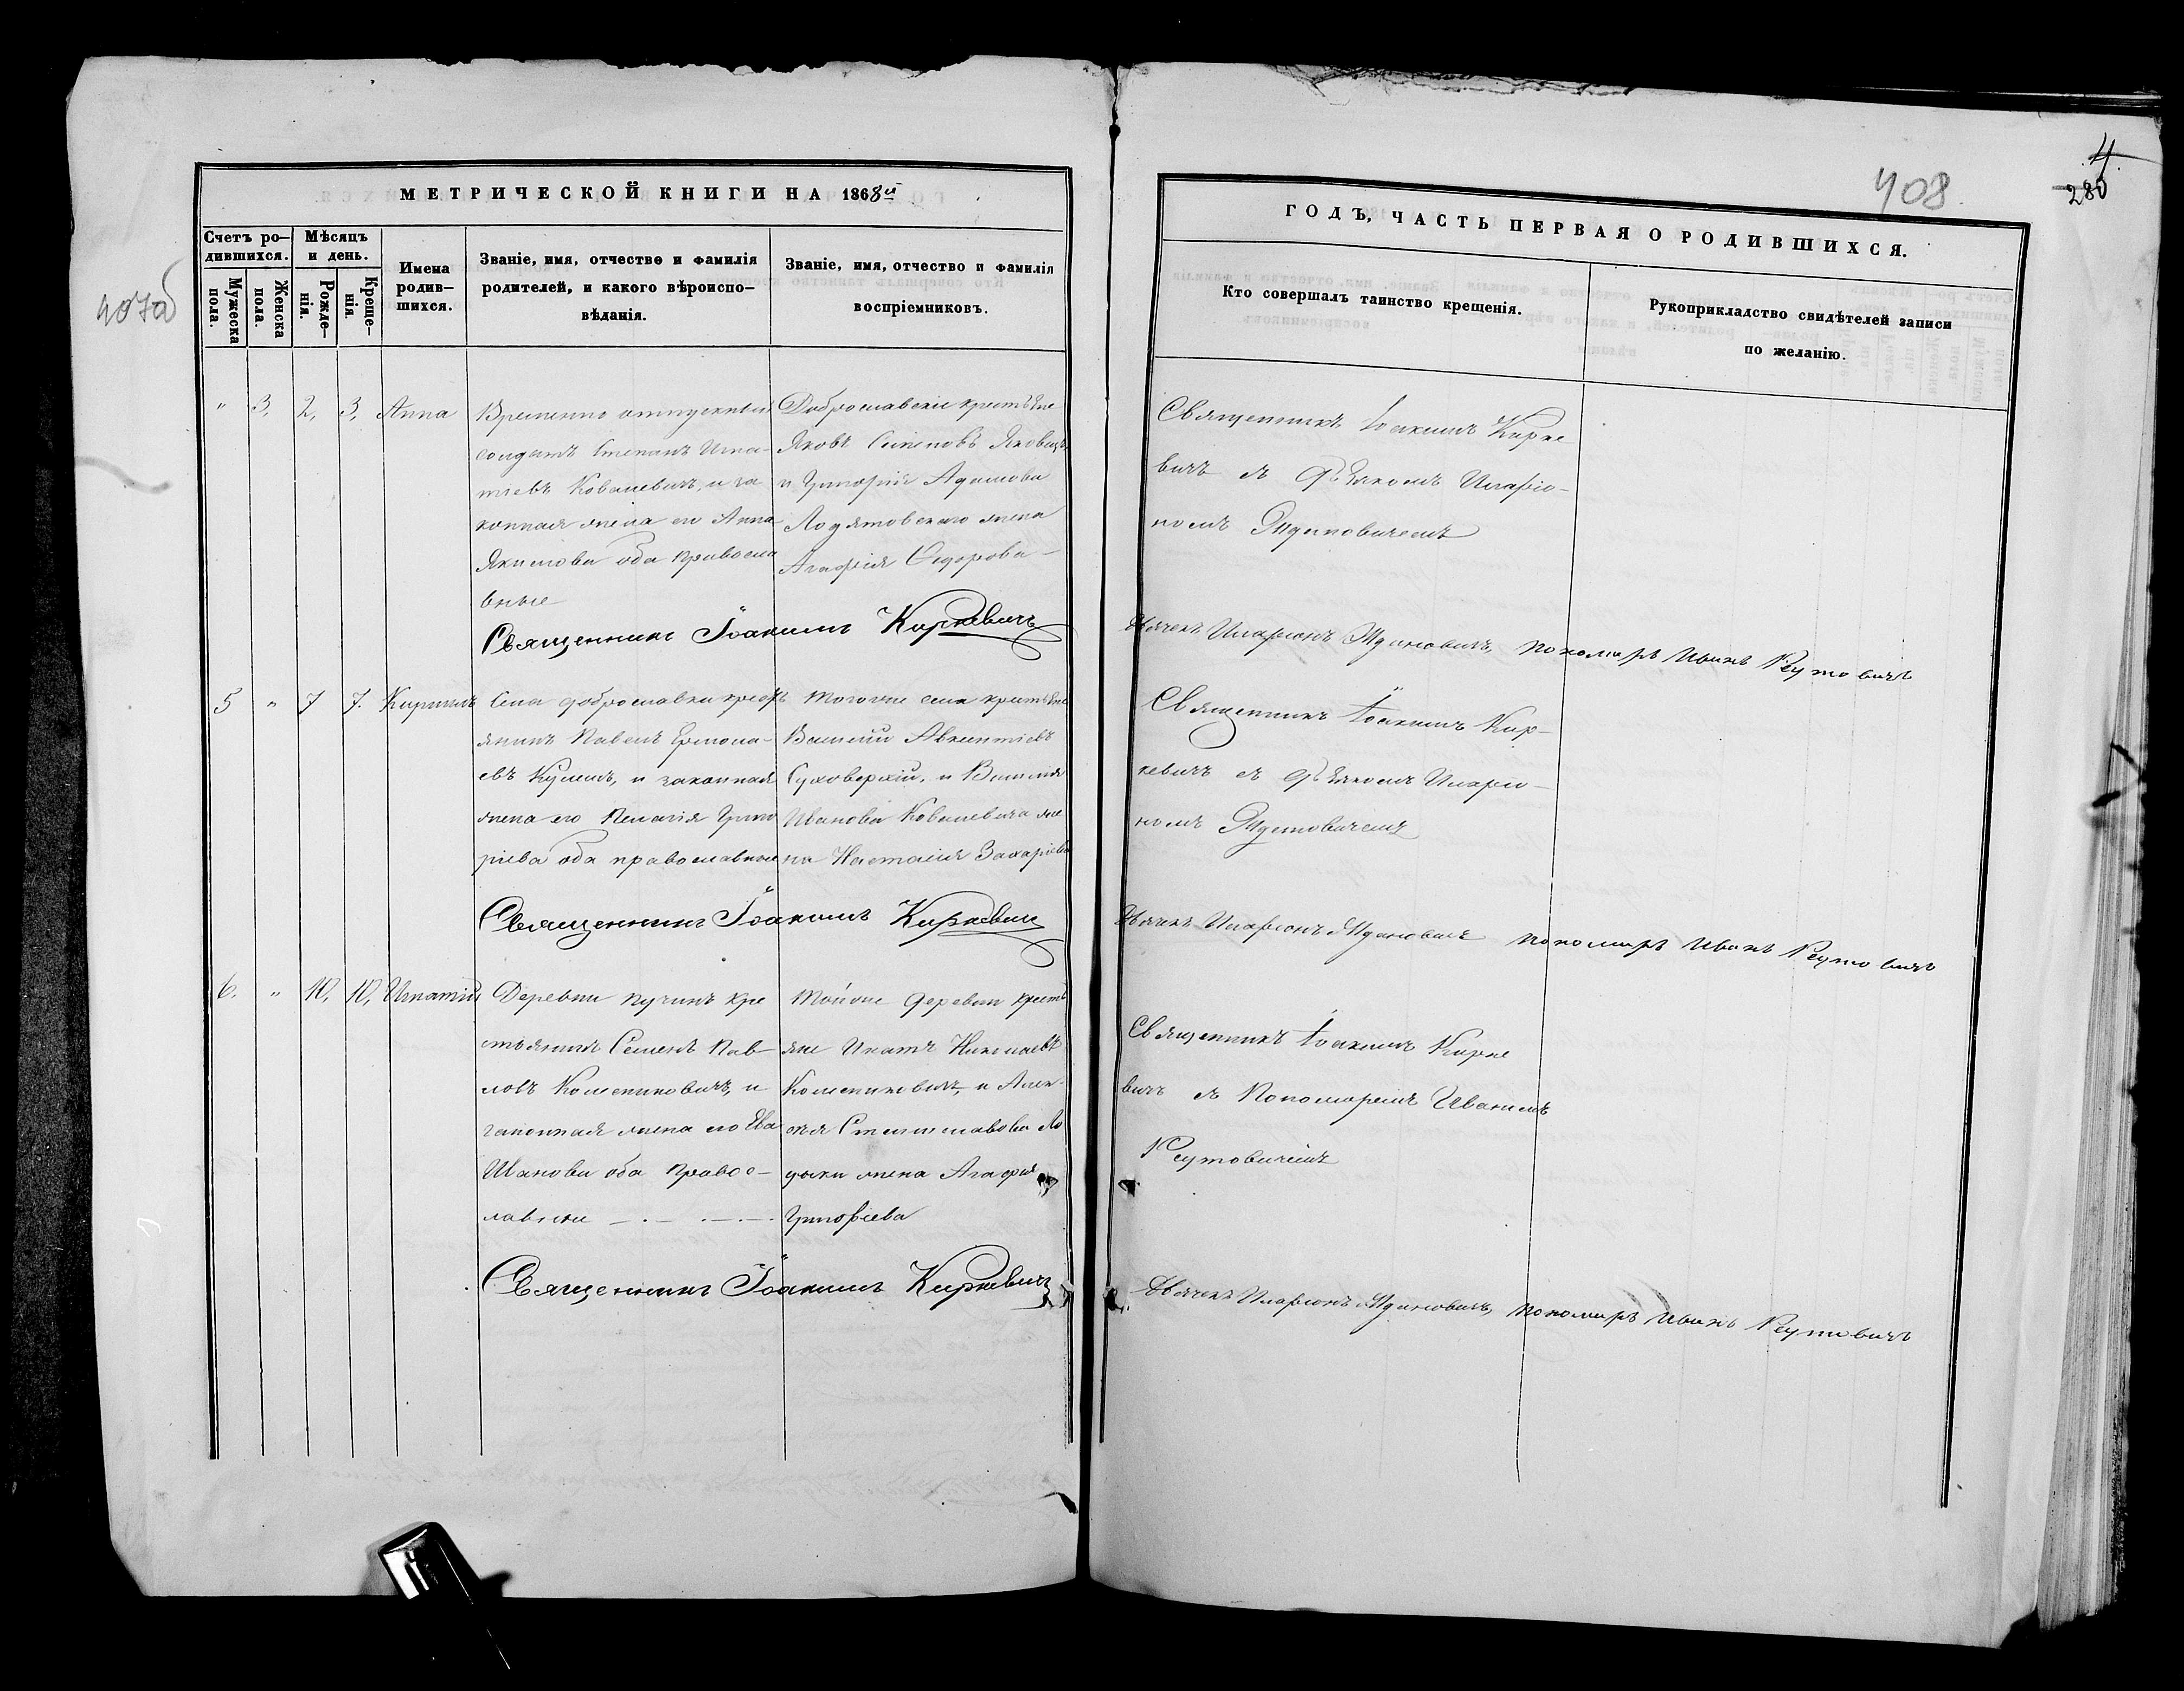 МЕТРИЧЕСКОЙ КНИГИ НА 1868й
Счетъ ро-
дившихся.
Мужеска
пола.
Женска
пола.
Мѣсяцъ
и день.
Рожде-
нія.
Креще-
нія.
Имена
родив-
шихся.
Званіе, имя, отчество и фамилія
родителей, и какого вѣроиспо-
вѣданія.
Званіе, имя, отчество и фамилія
воспріемниковъ.
407об
" 3, 2, 3, Анна
Временно отпускный
солдатъ Степанъ Игна-
тіевъ Ковалевичъ, и за
конная жена его Анна
Якимова оба правосла
вные
Доброславскіе крестьяне
Яковъ Семеновъ
и Григорія Адамова
жена
Агафія Сидорова
Священникъ Іоакимъ Киркевичъ
5 " 7 7. Кириллъ
Села Доброславки крест
янинъ Павелъ Ермола-
евъ Кулешъ, и законная
жена его Пелагія Григо
ріева оба православные
Тогоже села крестьяне
Василій Авксентіевъ
Суховерхій, и Василія
Иванова Ковалевича же
на Настасія Захаріева
Священникъ Іоакимъ Киркевичъ
6. " 10, 10, Игнатій
Деревни Пучинъ кре
стьянинъ Семенъ Пав-
ловъ Колениковичъ, и
законная жена его Ева
Иванова оба правос-
лавные
Тойже деревни крестья
яне Игнатъ Николаевъ
Колениковичъ, и Алек-
сея Станиславова
жена Агафія
Григоріева
Священникъ Іоакимъ Киркевичъ
4.
280
408
ГОДЪ, ЧАСТЬ ПЕРВАЯ О РОДИВШИХСЯ.
Кто совершалъ таинство крещенія.
Рукоприкладство свидѣтелей записи
по желанію.
Священникъ Іоакимъ Кирке
вичъ съ дьячкомъ Иларіо-
номъ Ждановичемъ
Дьячекъ Иларіонъ Ждановичъ, пономарь Иванъ Реутовичъ
Священникъ Іоакимъ Кир-
кевичъ съ дьячкомъ Иларіо-
номъ Ждановичемъ
Дьячекъ Иларіонъ Ждановичъ пономарь Иванъ Реутовичъ
Священникъ Іоакимъ Кирке
вичъ съ Пономаремъ Иваномъ
Реутовичемъ
Дьячекъ Иларіонъ Ждановичъ, пономарь Иванъ Реутовичъ